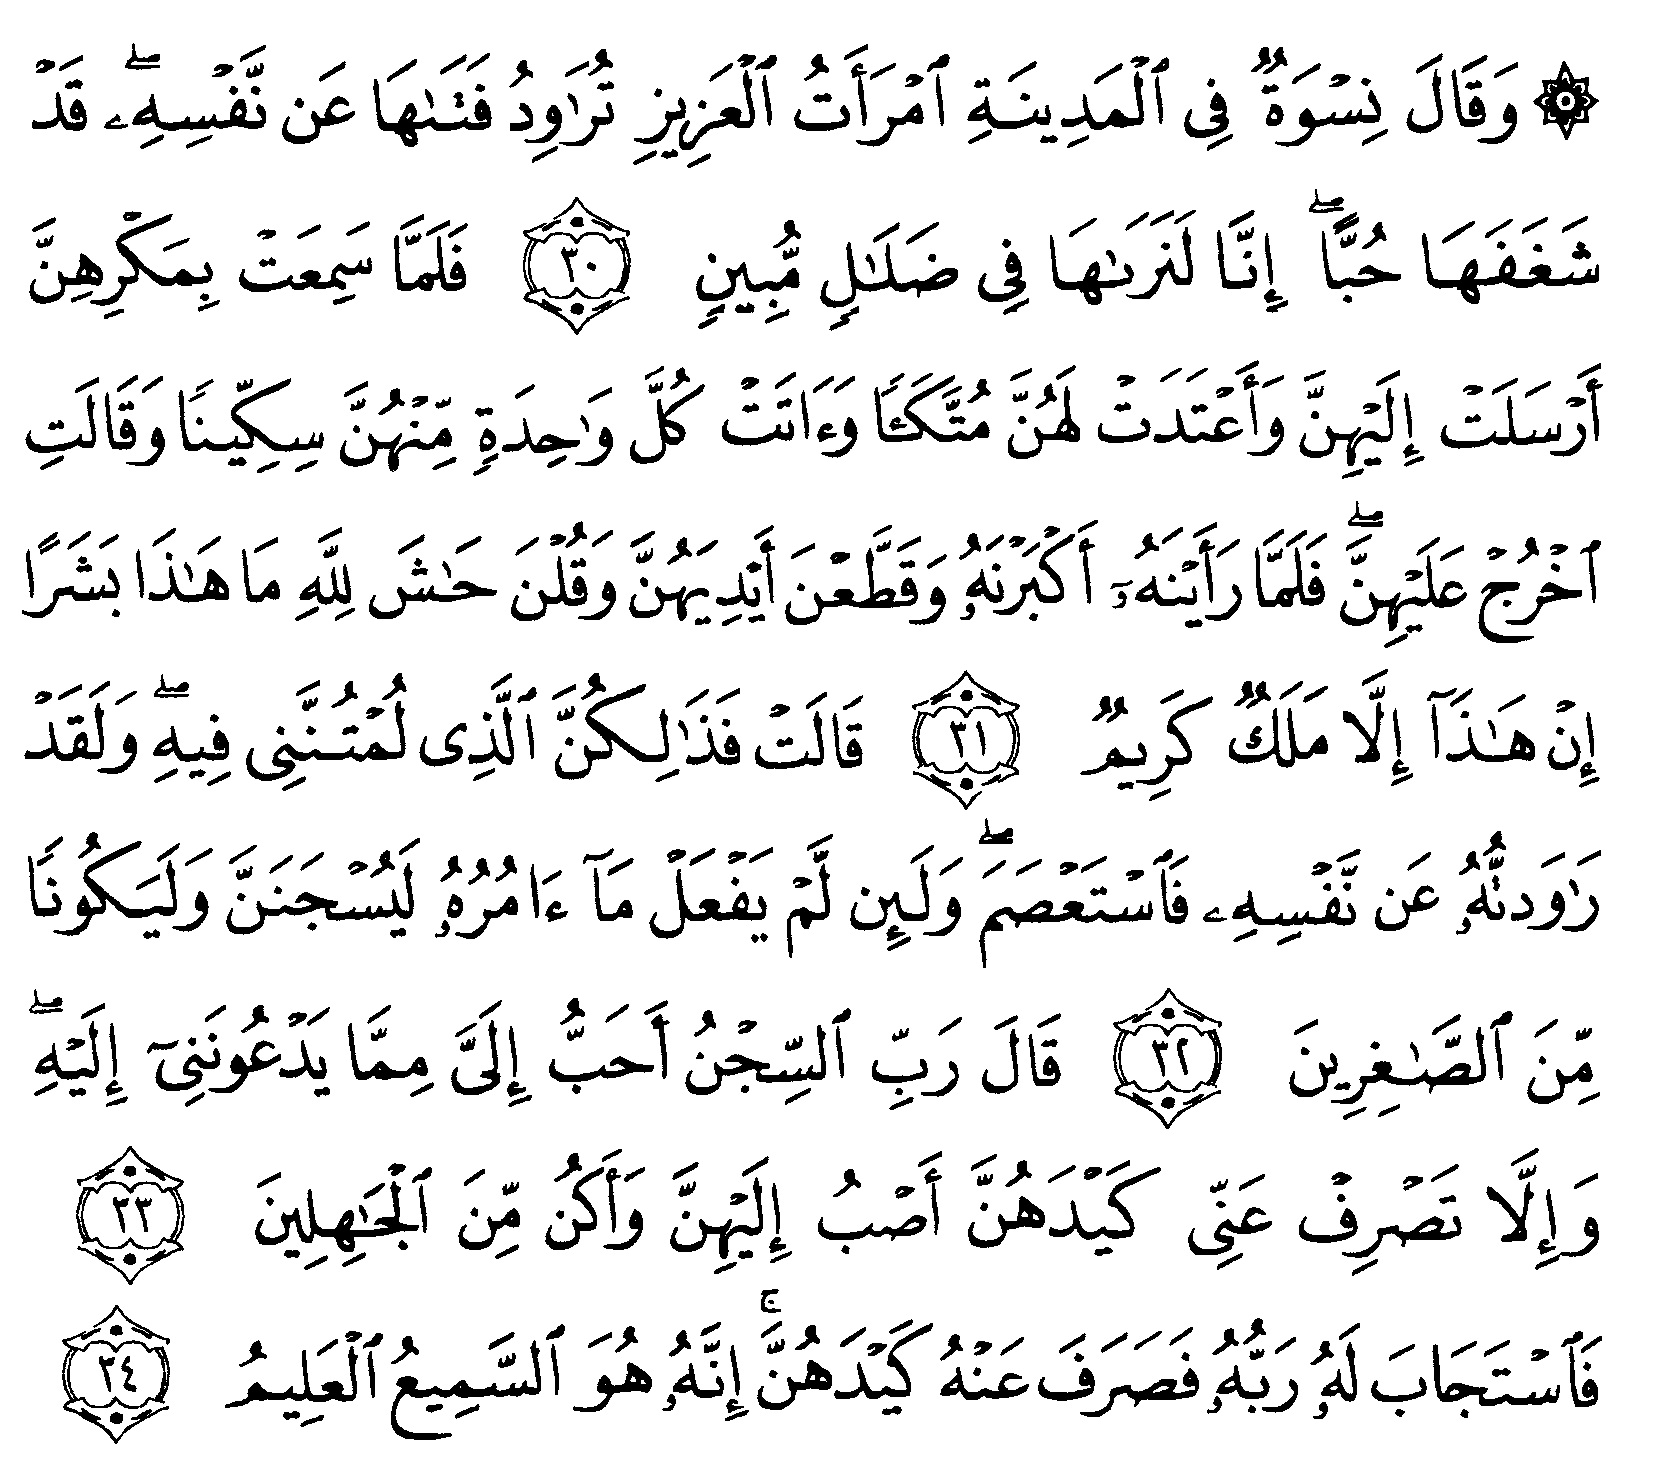 ۞ وَقَالَ نِسْوَةٌ فِى ٱلْمَدِينَةِ ٱمْرَأَتُ ٱلْعَزِيزِ تُرَٰوِدُ فَتَىٰهَا عَن نَّفْسِهِۦ ۖ قَدْ
شَغَفَهَا حُبًّا ۖ إِنَّا لَنَرَىٰهَا فِى ضَلَٰلٍ مُّبِينٍ ٣٠ فَلَمَّا سَمِعَتْ بِمَكْرِهِنَّ
أَرْسَلَتْ إِلَيْهِنَّ وَأَعْتَدَتْ لَهُنَّ مُتَّكَـًٔا وَءَاتَتْ كُلَّ وَٰحِدَةٍ مِّنْهُنَّ سِكِّينًا وَقَالَتِ
ٱخْرُجْ عَلَيْهِنَّ ۖ فَلَمَّا رَأَيْنَهُۥٓ أَكْبَرْنَهُۥ وَقَطَّعْنَ أَيْدِيَهُنَّ وَقُلْنَ حَٰشَ لِلَّهِ مَا هَٰذَا بَشَرًا
إِنْ هَٰذَآ إِلَّا مَلَكٌ كَرِيمٌ ٣١ قَالَتْ فَذَٰلِكُنَّ ٱلَّذِى لُمْتُنَّنِى فِيهِ ۖ وَلَقَدْ
رَٰوَدتُّهُۥ عَن نَّفْسِهِۦ فَٱسْتَعْصَمَ ۖ وَلَئِن لَّمْ يَفْعَلْ مَآ ءَامُرُهُۥ لَيُسْجَنَنَّ وَلَيَكُونًا
مِّنَ ٱلصَّٰغِرِينَ ٣٢ قَالَ رَبِّ ٱلسِّجْنُ أَحَبُّ إِلَىَّ مِمَّا يَدْعُونَنِىٓ إِلَيْهِ ۖ
وَإِلَّا تَصْرِفْ عَنِّى كَيْدَهُنَّ أَصْبُ إِلَيْهِنَّ وَأَكُن مِّنَ ٱلْجَٰهِلِينَ ٣٣
فَٱسْتَجَابَ لَهُۥ رَبُّهُۥ فَصَرَفَ عَنْهُ كَيْدَهُنَّ ۚ إِنَّهُۥ هُوَ ٱلسَّمِيعُ ٱلْعَلِيمُ ٣٤